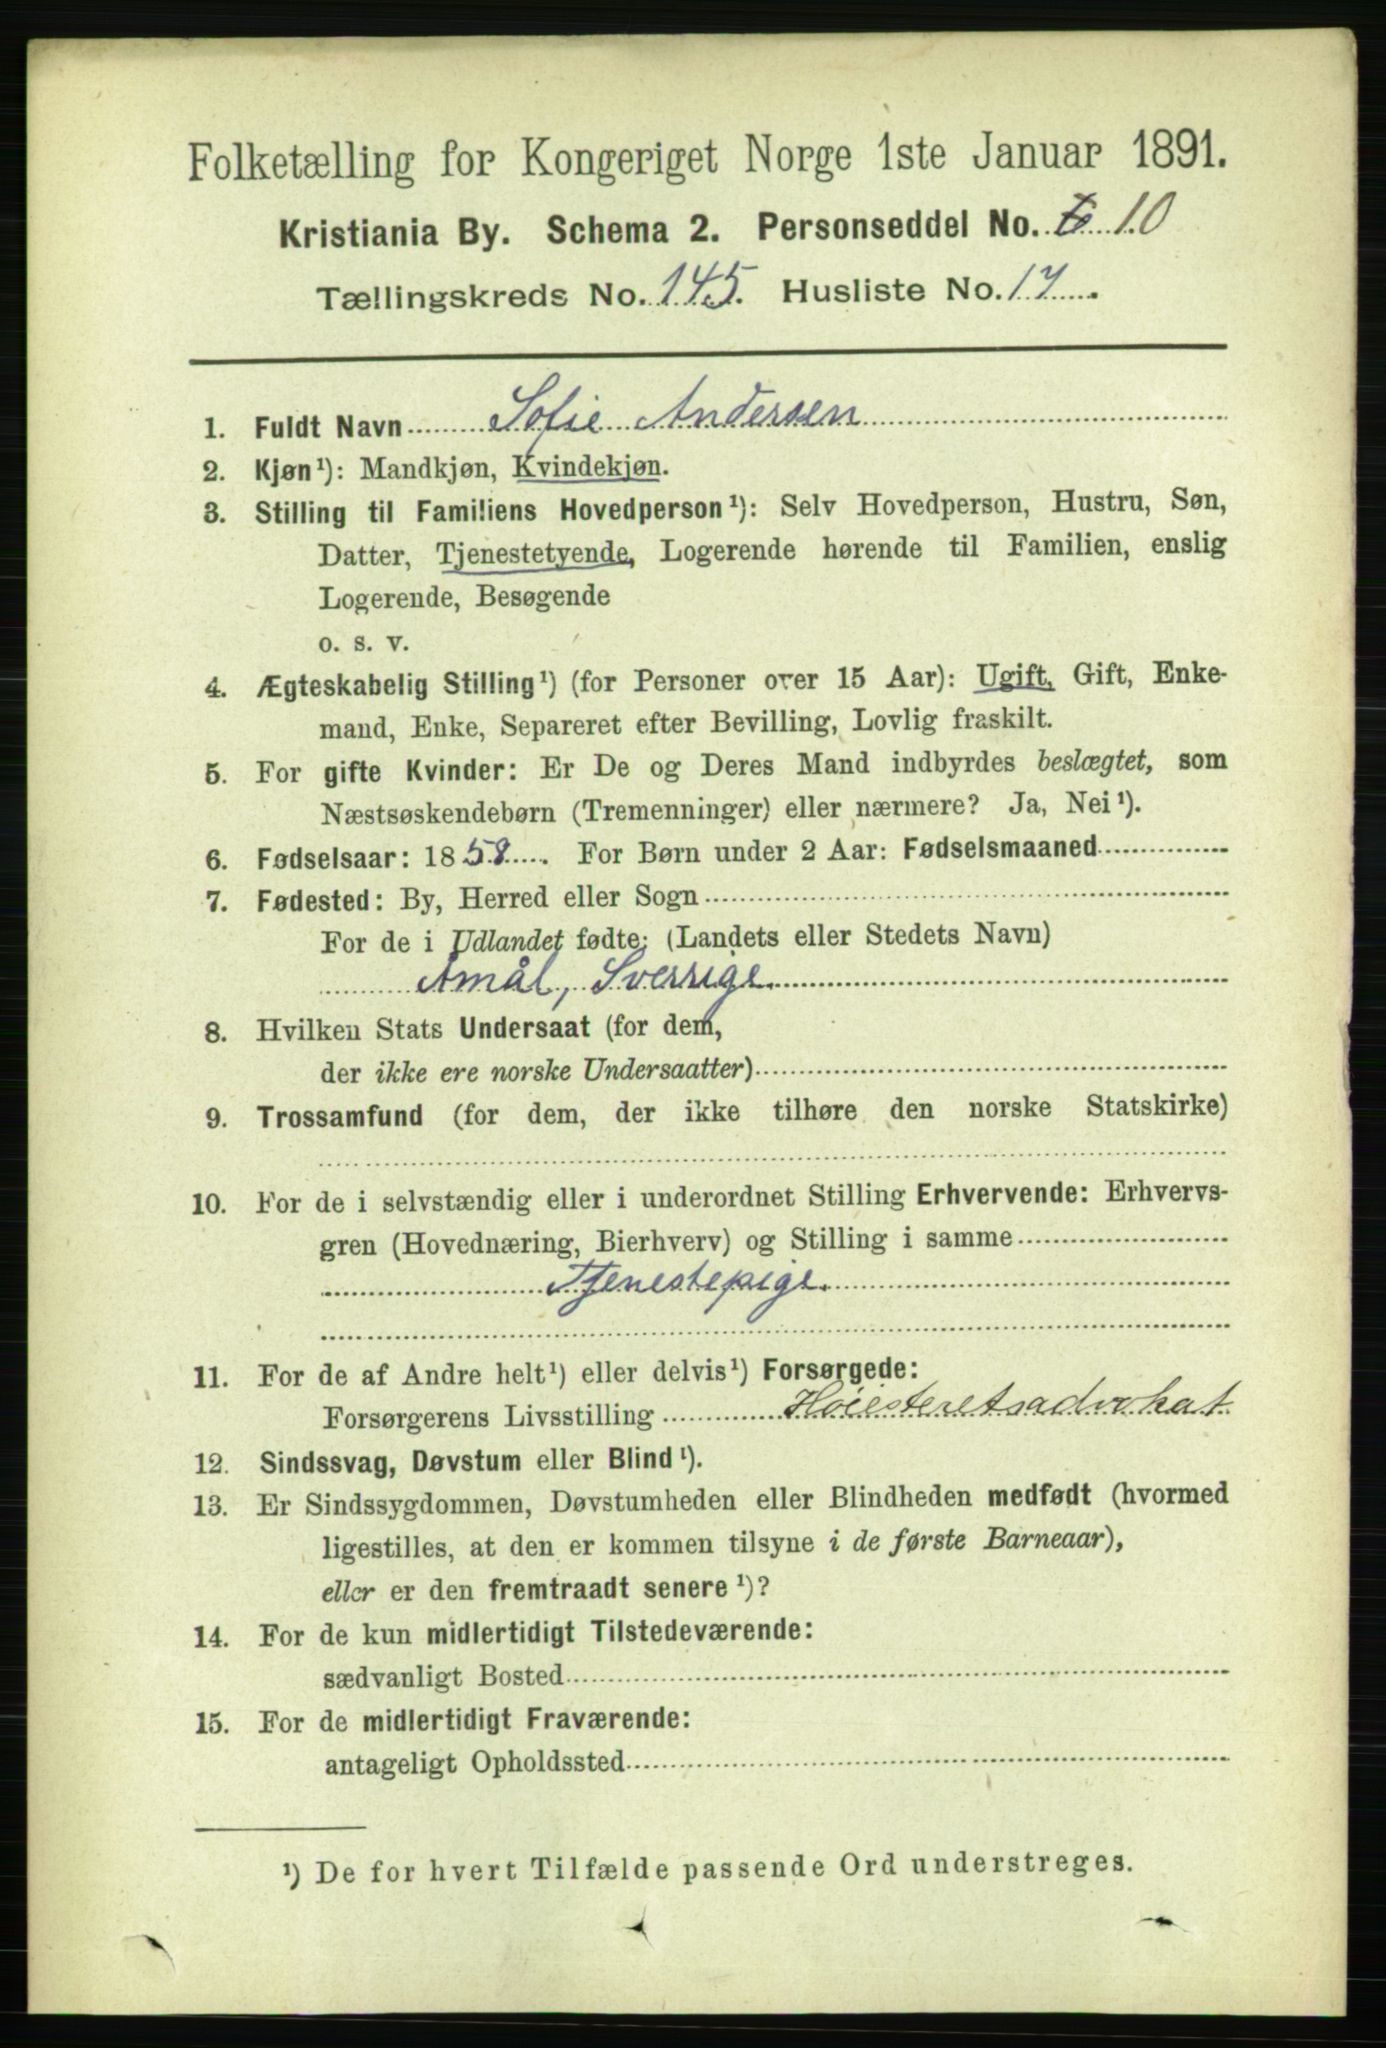 Folketælling for Kongeriget Norge 1ste Januar 1891.
Kristiania By. Schema 2. Personseddel No. 10
Tællingskreds No. 145. Husliste No. 17
1. Fuldt Navn Sofie Andersen
2. Kjøn¹): Mandkjøn, Kvindekjøn.
3. Stilling til Familiens Hovedperson¹): Selv Hovedperson, Hustru, Søn,
Datter, Tjenestetyende, Logerende hørende til Familien, enslig
Logerende, Besøgende
o. s. v.
4. Ægteskabelig Stilling¹) (for Personer over 15 Aar): Ugift, Gift, Enke-
mand, Enke, Separeret efter Bevilling, Lovlig fraskilt.
5. For gifte Kvinder: Er De og Deres Mand indbyrdes beslægtet, som
Næstsøskendebørn (Tremenninger) eller nærmere? Ja, Nei¹).
6. Fødselsaar: 1858. For Børn under 2 Aar: Fødselsmaaned
7. Fødested: By, Herred eller Sogn
For de i Udlandet fødte: (Landets eller Stedets Navn)
Åmål, Sverrige
8. Hvilken Stats Undersaat (for dem,
der ikke ere norske Undersaatter)
9. Trossamfund (for dem, der ikke tilhøre den norske Statskirke)
10. For de i selvstændig eller i underordnet Stilling Erhvervende: Erhvervs-
gren (Hovednæring, Bierhverv) og Stilling i samme
Tjenestepige
11. For de af Andre helt¹) eller delvis¹) Forsørgede:
Forsørgerens Livsstilling Høiesteretsadvokat
12. Sindssvag, Døvstum eller Blind¹).
13. Er Sindssygdommen, Døvstumheden eller Blindheden medfødt (hvormed
ligestilles, at den er kommen tilsyne i de første Barneaar),
eller er den fremtraadt senere¹)?
14. For de kun midlertidigt Tilstedeværende:
sædvanligt Bosted
15. For de midlertidigt Fraværende:
antageligt Opholdssted
¹) De for hvert Tilfælde passende Ord understreges.